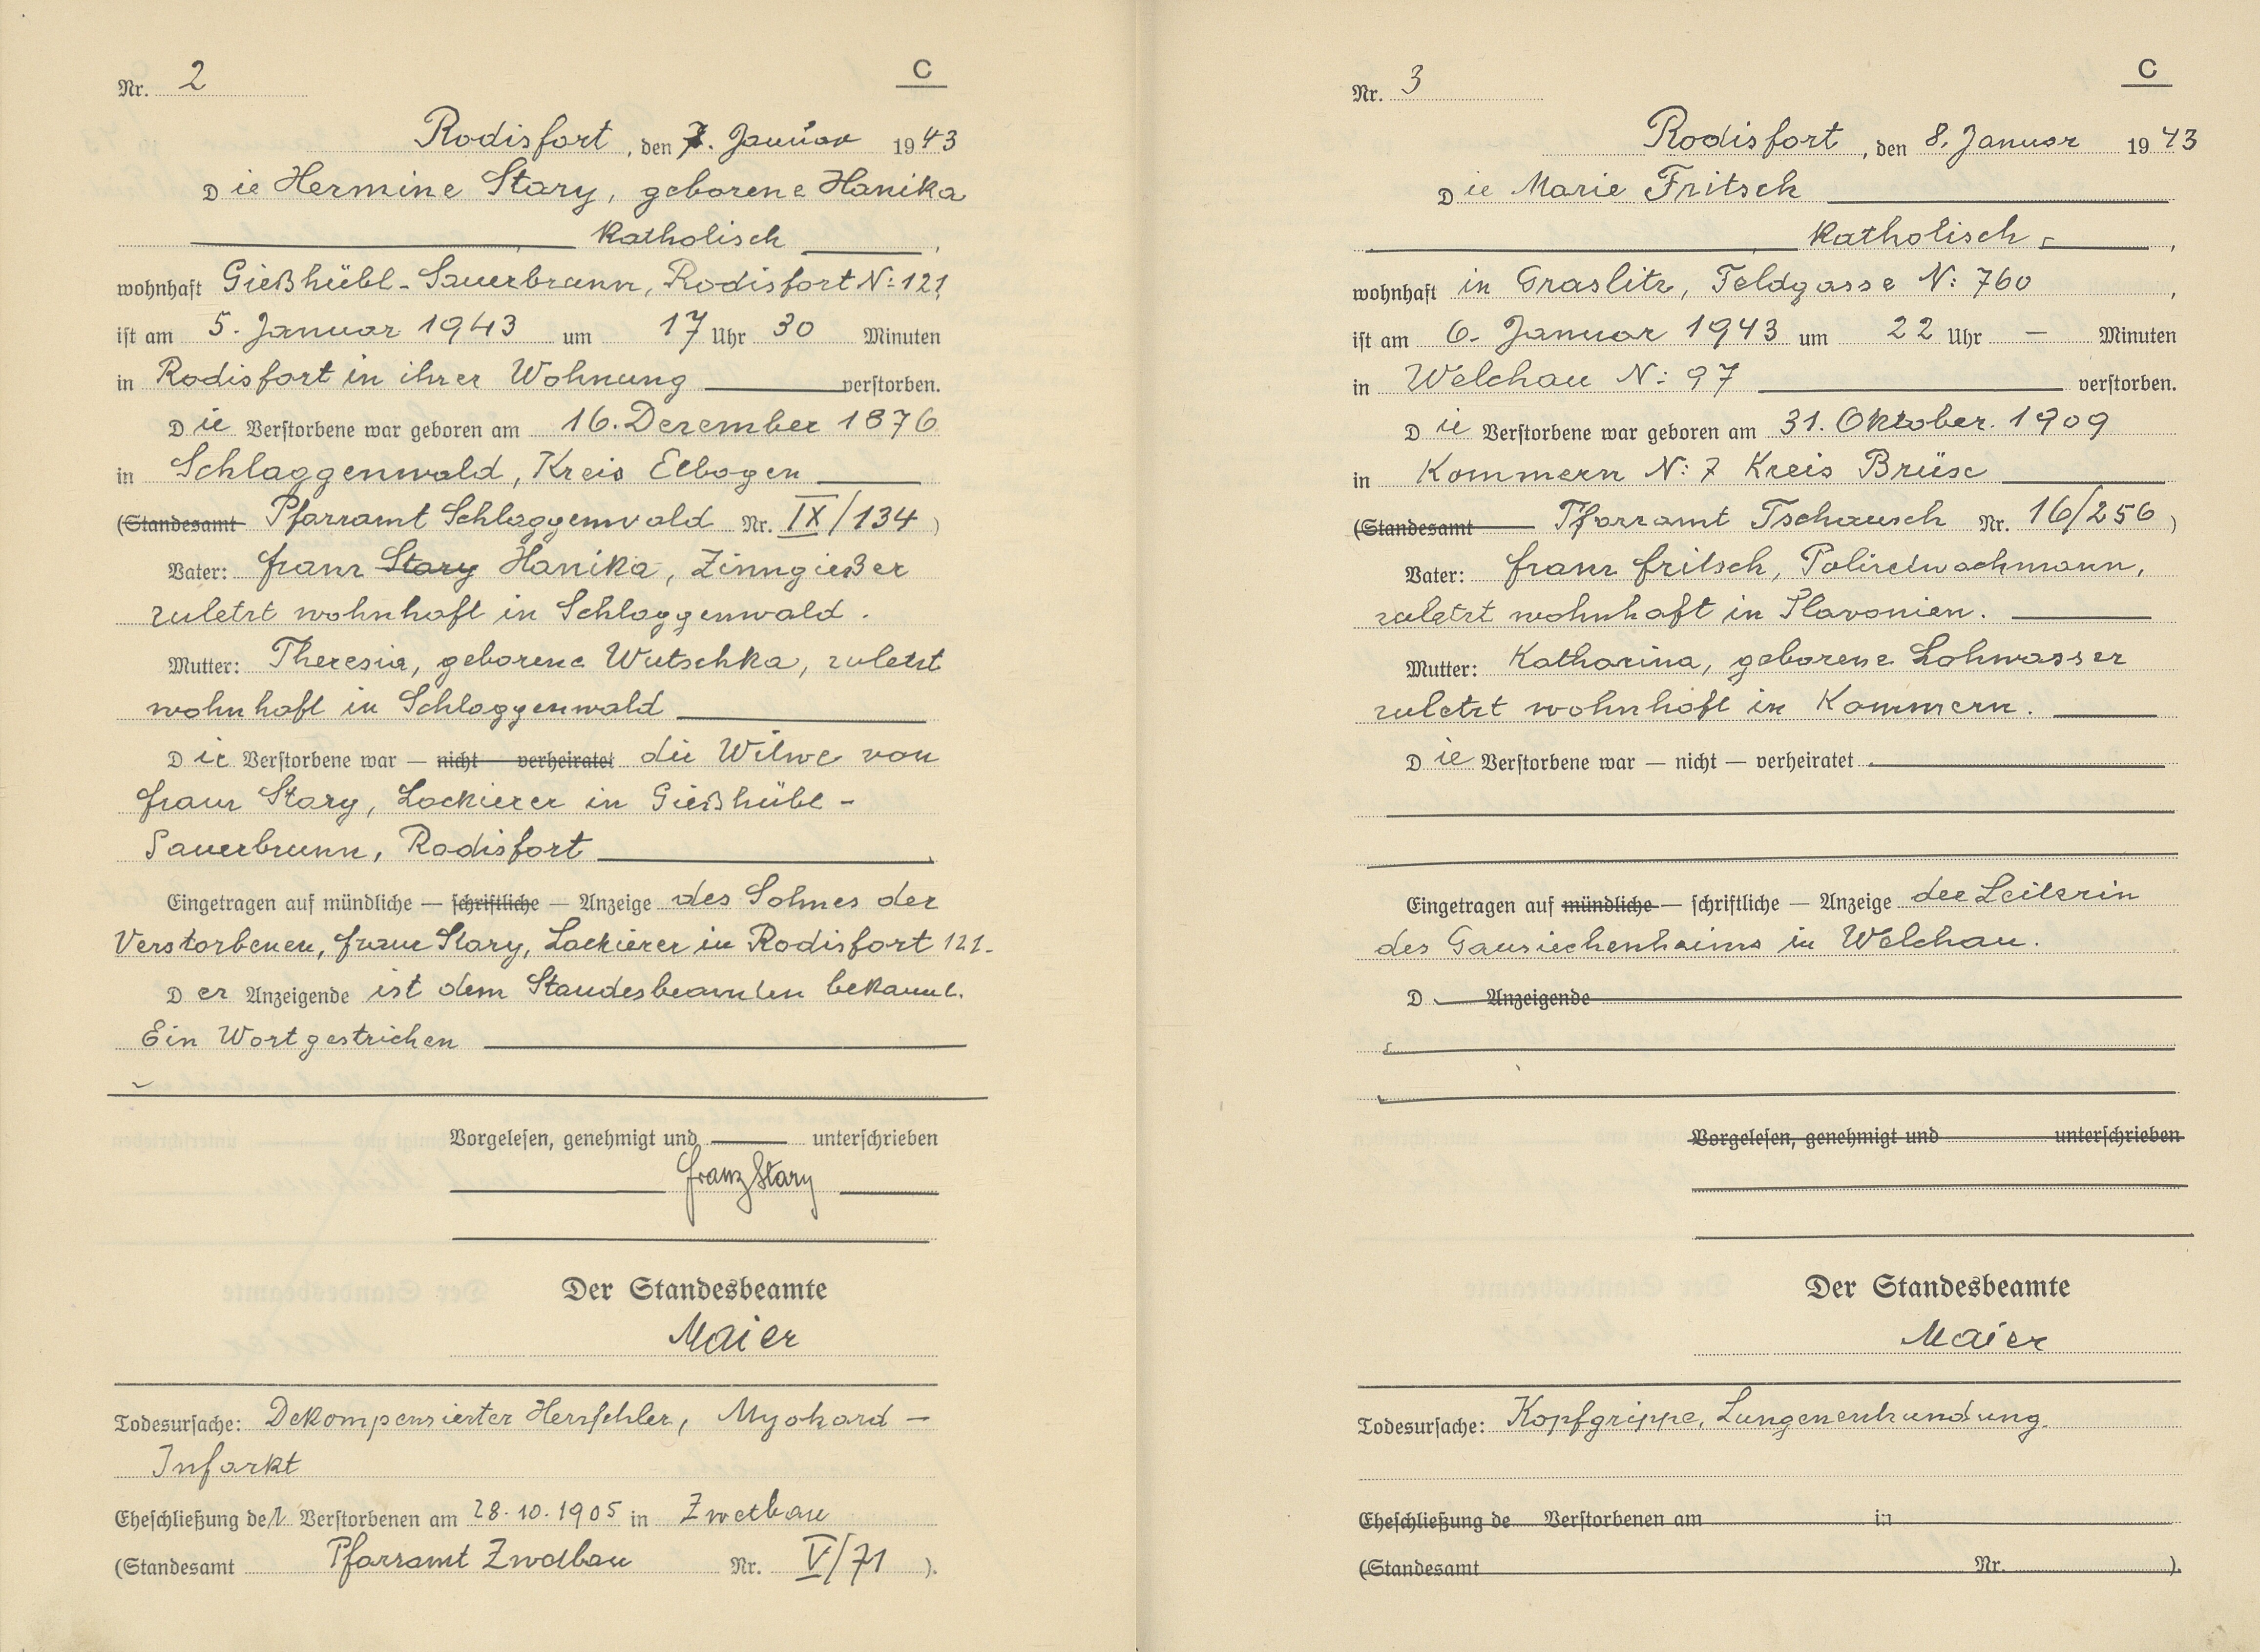 Nr. 2
C
Rodisfort, den 7. Januar 1943
Die Hermine Stary, geborene Hanika
katholisch,
wohnhaft Gießhübl-Sauerbrunn, Rodisfort N: 121,
ist am 5. Januar 1943 um 17 Uhr 30 Minuten
in Rodisfort in ihrer Wohnung verstorben.
Die Verstorbene war geboren am 16. Dezember 1876
in Schlaggenwald, Kreis Elbogen
(Standesamt Pfarramt Schlaggenwald Nr. IX/134)
Vater: Franz Stary Hanika, Zinngießer
zuletzt wohnhaft in Schlaggenwald.
Mutter: Theresia, geborene Wutschka, zuletzt
wohnhaft in Schlaggenwald
Die Verstorbene war — nicht — verheiratet die Witwe von
Franz Stary, Lackierer in Gießhübl-
Sauerbrunn, Rodisfort
Eingetragen auf mündliche — schriftliche — Anzeige des Sohnes der
Verstorbenen, Franz Stary, Lackierer in Rodisfort 121.
Der Anzeigende ist dem Standesbeamten bekannt.
Ein Wort gestrichen
Vorgelesen, genehmigt und unterschrieben
Franz Stary
Der Standesbeamte
Maier
Todesursache: Dekompensierter Herzfehler, Myokard-
Infarkt
Eheschließung der Verstorbenen am 28.10.1905 in Zwetbau
(Standesamt Pfarramt Zwetbau Nr. V/71).
Nr. 3
C
Rodisfort, den 8. Januar 1943
Die Marie Fritsch
katholisch,
wohnhaft in Graslitz, Feldgasse N: 760,
ist am 6. Januar 1943 um 22 Uhr — Minuten
in Welchau N: 97 verstorben.
Die Verstorbene war geboren am 31. Oktober 1909
in Kommern N: 7 Kreis Brüx
(Standesamt Pfarramt Tschausch Nr. 16/256)
Vater: Franz Fritsch, Polizeiwachmann,
zuletzt wohnhaft in Slavonien.
Mutter: Katharina, geborene Lohwasser
zuletzt wohnhaft in Kommern.
Die Verstorbene war — nicht — verheiratet
Eingetragen auf mündliche — schriftliche — Anzeige der Leiterin
des Gausiechenheims in Welchau.
D Anzeigende
Vorgelesen, genehmigt und unterschrieben
Der Standesbeamte
Maier
Todesursache: Kopfgrippe, Lungenentzündung.
Eheschließung de Verstorbenen am in
(Standesamt Nr. ).